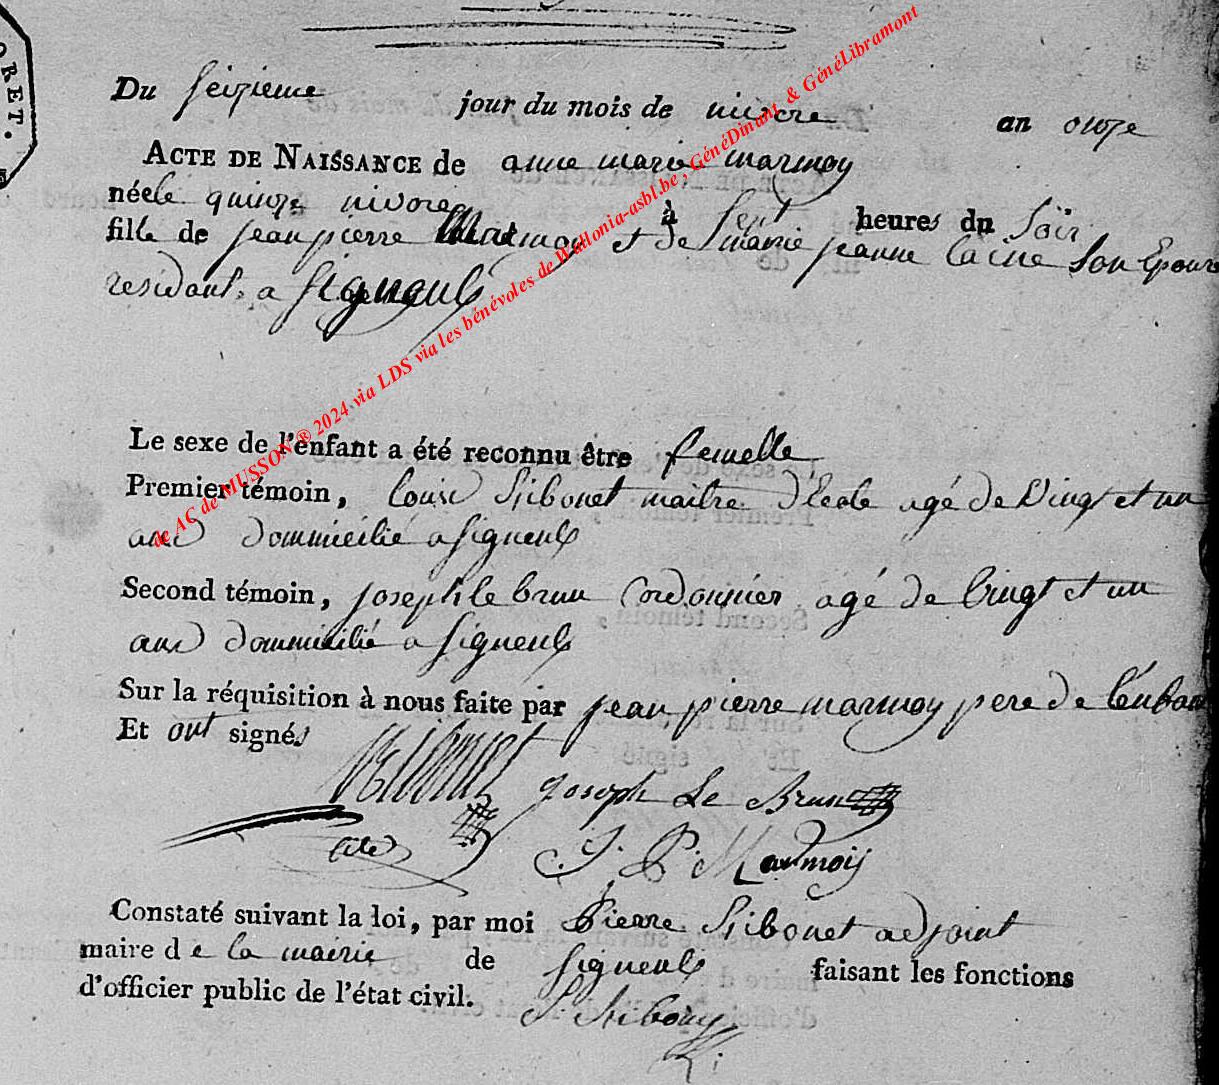 ORET.
Du seizieme jour du mois de nivore an onze
ACTE DE NAISSANCE de anne marie marmoy
née le quinze nivore à Sept heures du Soir
fille de jean pierre Marmoy et de marie jeanne laine Son Epouse
residant a Signeulx
Le sexe de l'enfant a été reconnu être femelle
Premier témoin, louis Stibonet maitre d'Ecole agé de Vingt et un
ans dommicilié a Signeulx
Second témoin, joseph le brun Cordonnier agé de Vingt et un
ans dommicilié a Signeulx
Sur la réquisition à nous faite par jean pierre marmoy pere de l'enfant
Et ont signés
Joseph Le Brun
J. P. Marmois
Constaté suivant la loi, par moi Pierre Stibonet adjoint
maire de la mairie de Signeulx faisant les fonctions
d'officier public de l'état civil.
de AC de MUSSON ® 2024 via LDS via les bénévoles de Wallonia-asbl.be , GénéDinant & GénéLibramont